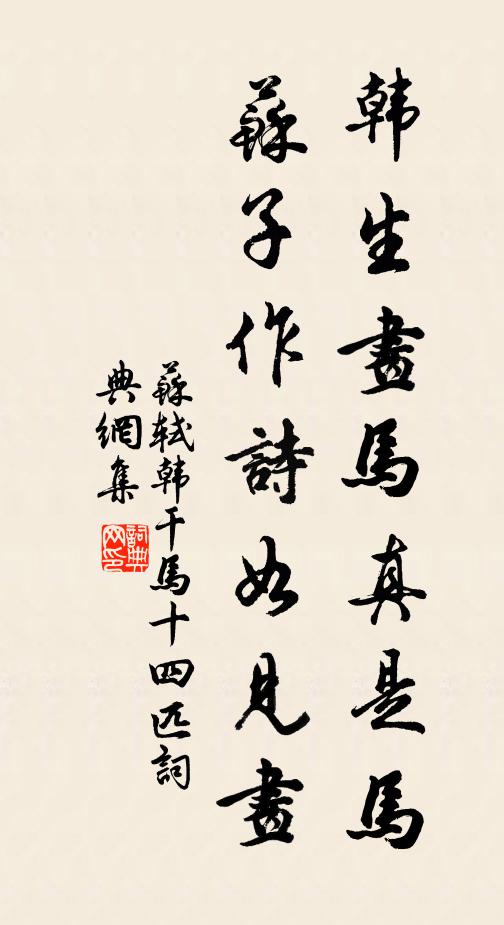 韩生畫馬真是馬
蘇子作詩如見畫
蘇轼韩干馬十四匹詞
典網集
詞典
网印